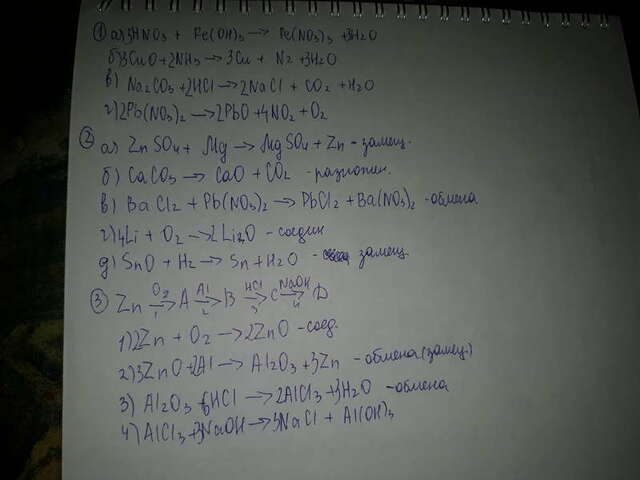 ① а) 3HNO3 + Fe(OH)3 → Fe(NO3)3 + 3H2O
б) 3CuO + 2NH3 → 3Cu + N2 + 3H2O
в) Na2CO3 + 2HCl → 2NaCl + CO2 + H2O
г) 2Pb(NO3)2 → 2PbO + 4NO2 + O2
② а) ZnSO4 + Mg → MgSO4 + Zn - замещ.
б) CaCO3 → CaO + CO2 - разложен.
в) BaCl2 + Pb(NO3)2 → PbCl2 + Ba(NO3)2 - обмена
г) 4Li + O2 → 2Li2O - соедин
д) SnO + H2 → Sn + H2O - замещ.
③ Zn O2→1 A Al→2 B HCl→3 C NaOH→4 D
1) 2Zn + O2 → 2ZnO - соед.
2) 3ZnO + 2Al → Al2O3 + 3Zn - обмена (замещ.)
3) Al2O3 + 6HCl → 2AlCl3 + 3H2O - обмена
4) AlCl3 + 3NaOH → 3NaCl + Al(OH)3